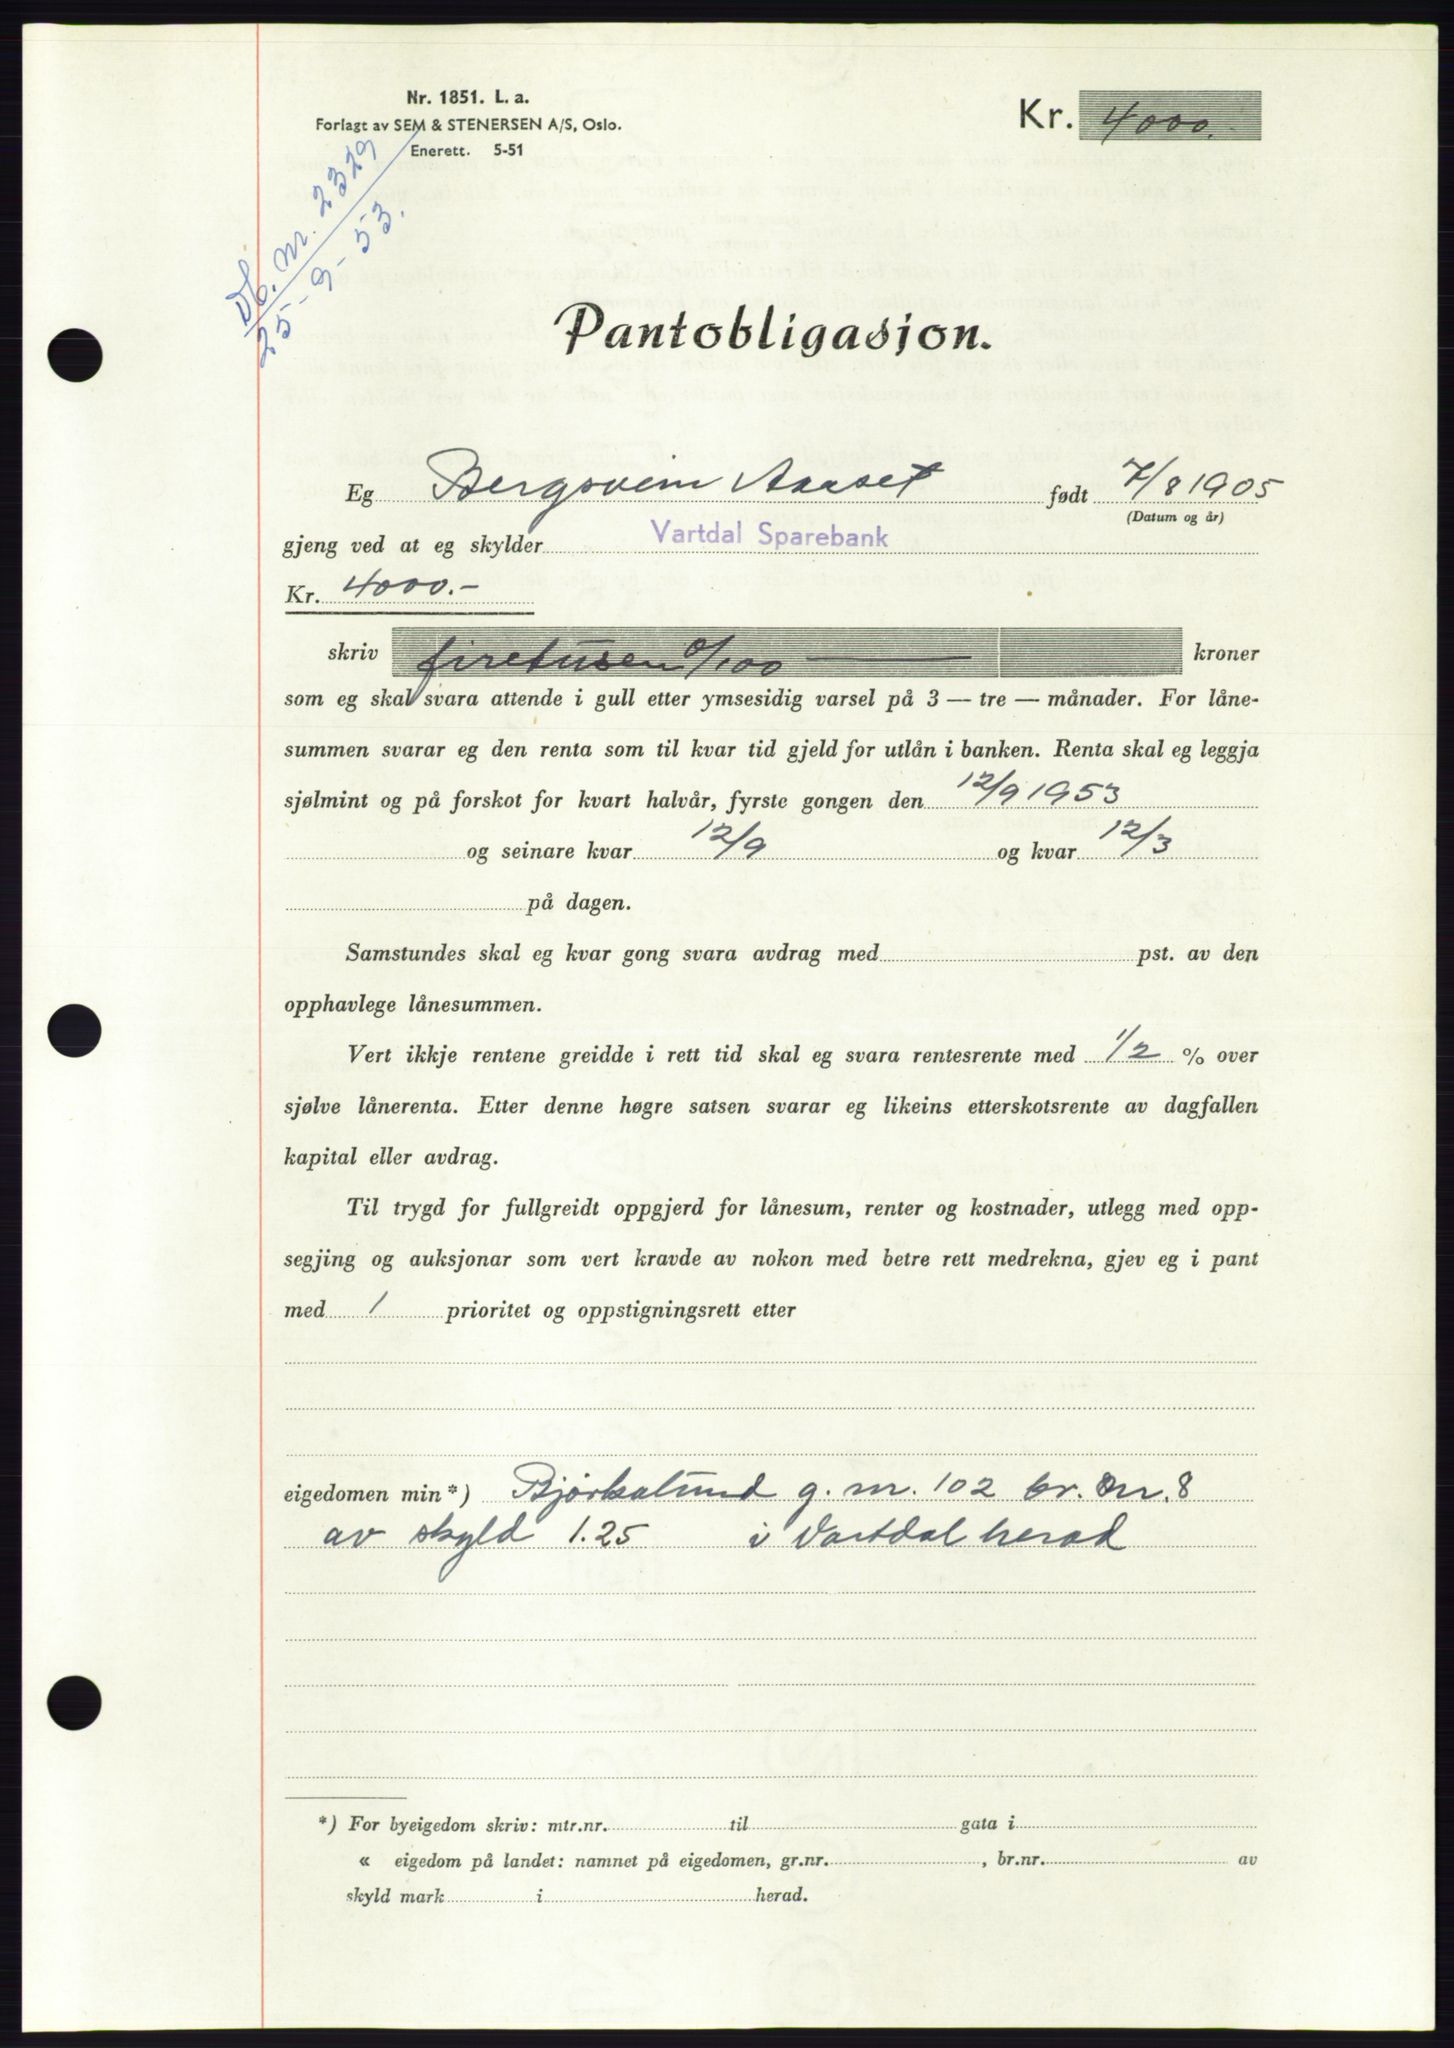 Nr. 1851. L. a.
Forlagt av SEM & STENERSEN A/S, Oslo.
Enerett. 5-51
Kr. 4000.
Db. nr. 2329
25-9-53.
Pantobligasjon.
Eg Bergsvein Aaaset født 7/8 1905
(Datum og år)
gjeng ved at eg skylder Vartdal Sparebank
Kr. 4000.-
skriv firetusen 0/100 kroner
som eg skal svara attende i gull etter ymsesidig varsel på 3 — tre — månader. For låne-
summen svarar eg den renta som til kvar tid gjeld for utlån i banken. Renta skal eg leggja
sjølmint og på forskot for kvart halvår, fyrste gongen den 12/9 1953
og seinare kvar 12/9 og kvar 12/3
på dagen.
Samstundes skal eg kvar gong svara avdrag med pst. av den
opphavlege lånesummen.
Vert ikkje rentene greidde i rett tid skal eg svara rentesrente med 1/2 % over
sjølve lånerenta. Etter denne høgre satsen svarar eg likeins etterskotsrente av dagfallen
kapital eller avdrag.
Til trygd for fullgreidt oppgjerd for lånesum, renter og kostnader, utlegg med opp-
segjing og auksjonar som vert kravde av nokon med betre rett medrekna, gjev eg i pant
med 1 prioritet og oppstigningsrett etter
eigedomen min*) Bjørkalund g. nr. 102 br. nr. 8
av skyld 1.25 i Vartdal herad
*) For byeigedom skriv: mtr.nr. til gata i
« eigedom på landet: namnet på eigedomen, gr.nr. , br.nr. av
skyld mark i herad.